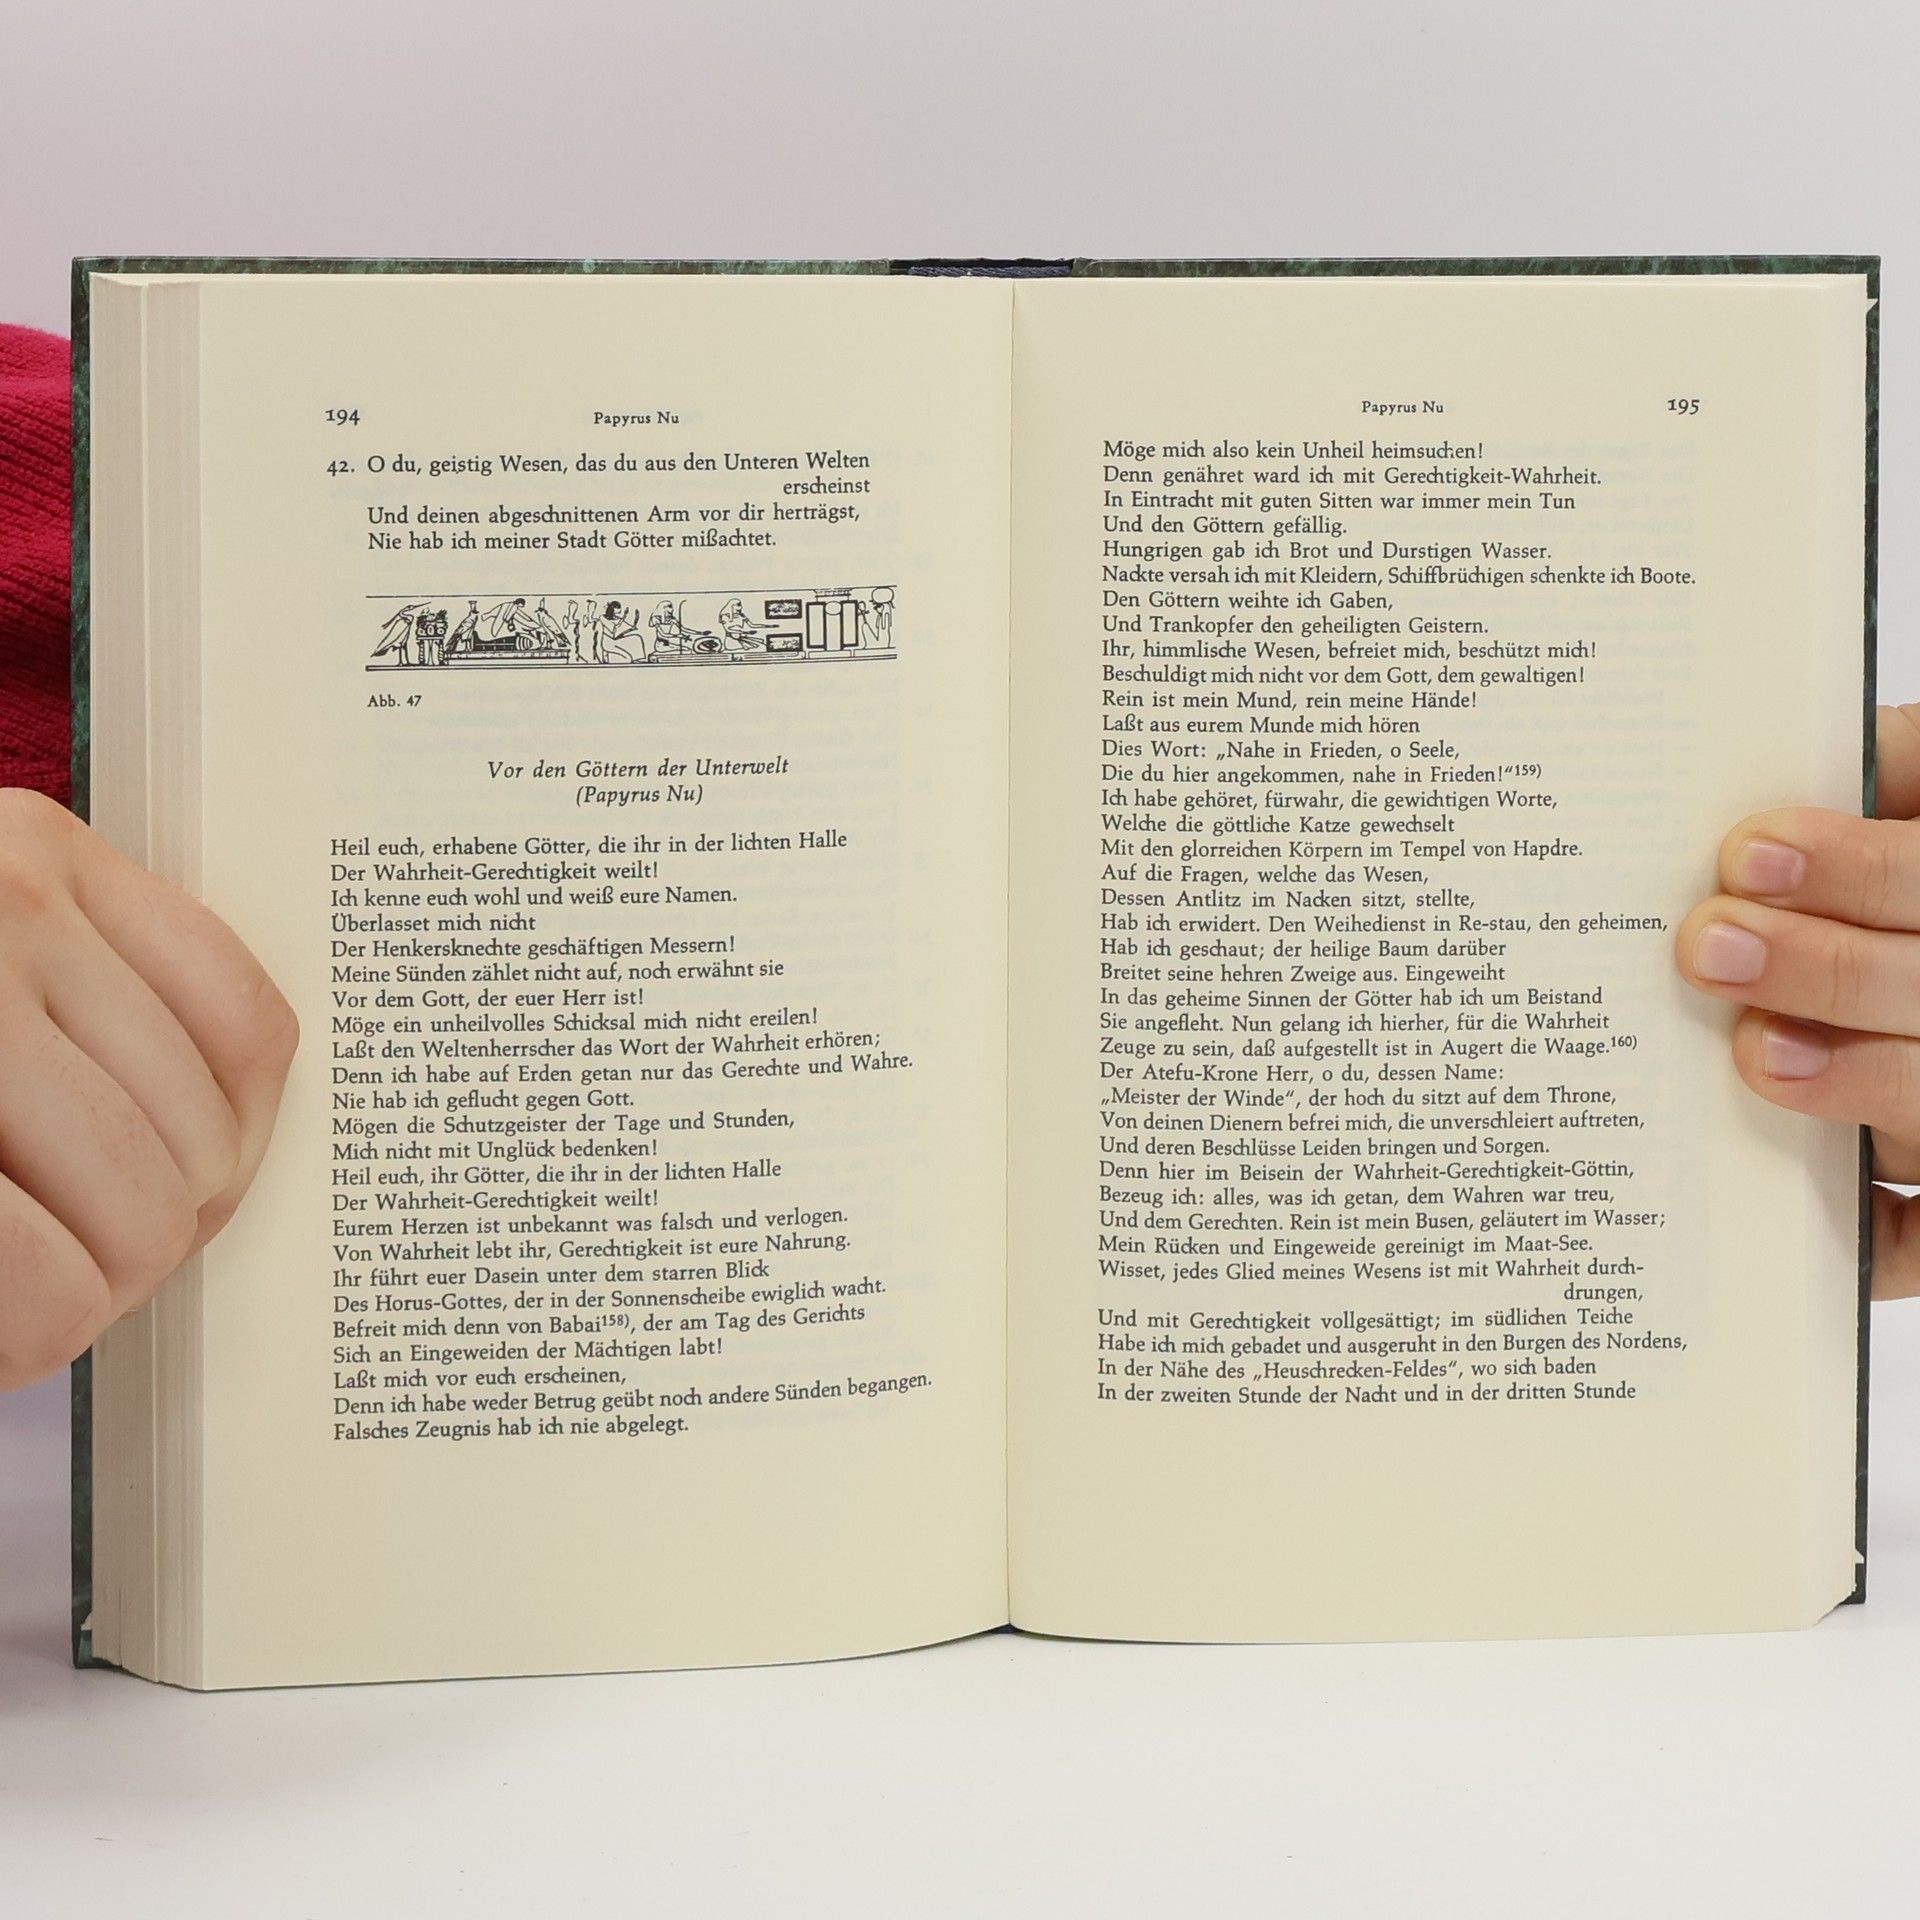 194
Papyrus Nu
42. O du, geistig Wesen, das du aus den Unteren Welten
erscheinst
Und deinen abgeschnittenen Arm vor dir herträgst,
Nie hab ich meiner Stadt Götter mißachtet.
Abb. 47
Vor den Göttern der Unterwelt
(Papyrus Nu)
Heil euch, erhabene Götter, die ihr in der lichten Halle
Der Wahrheit-Gerechtigkeit weilt!
Ich kenne euch wohl und weiß eure Namen.
Überlasset mich nicht
Der Henkersknechte geschäftigen Messern!
Meine Sünden zählet nicht auf, noch erwähnt sie
Vor dem Gott, der euer Herr ist!
Möge ein unheilvolles Schicksal mich nicht ereilen!
Laßt den Weltenherrscher das Wort der Wahrheit erhören;
Denn ich habe auf Erden getan nur das Gerechte und Wahre.
Nie hab ich geflucht gegen Gott.
Mögen die Schutzgeister der Tage und Stunden,
Mich nicht mit Unglück bedenken!
Heil euch, ihr Götter, die ihr in der lichten Halle
Der Wahrheit-Gerechtigkeit weilt!
Eurem Herzen ist unbekannt was falsch und verlogen.
Von Wahrheit lebt ihr, Gerechtigkeit ist eure Nahrung.
Ihr führt euer Dasein unter dem starren Blick
Des Horus-Gottes, der in der Sonnenscheibe ewiglich wacht.
Befreit mich denn von Babai¹⁵⁸), der am Tag des Gerichts
Sich an Eingeweiden der Mächtigen labt!
Laßt mich vor euch erscheinen,
Denn ich habe weder Betrug geübt noch andere Sünden begangen.
Falsches Zeugnis hab ich nie abgelegt.
Papyrus Nu
195
Möge mich also kein Unheil heimsuchen!
Denn genähret ward ich mit Gerechtigkeit-Wahrheit.
In Eintracht mit guten Sitten war immer mein Tun
Und den Göttern gefällig.
Hungrigen gab ich Brot und Durstigen Wasser.
Nackte versah ich mit Kleidern, Schiffbrüchigen schenkte ich Boote.
Den Göttern weihte ich Gaben,
Und Trankopfer den geheiligten Geistern.
Ihr, himmlische Wesen, befreiet mich, beschützt mich!
Beschuldigt mich nicht vor dem Gott, dem gewaltigen!
Rein ist mein Mund, rein meine Hände!
Laßt aus eurem Munde mich hören
Dies Wort: „Nahe in Frieden, o Seele,
Die du hier angekommen, nahe in Frieden!“¹⁵⁹)
Ich habe gehöret, fürwahr, die gewichtigen Worte,
Welche die göttliche Katze gewechselt
Mit den glorreichen Körpern im Tempel von Hapdre.
Auf die Fragen, welche das Wesen,
Dessen Antlitz im Nacken sitzt, stellte,
Hab ich erwidert. Den Weihedienst in Re-stau, den geheimen,
Hab ich geschaut; der heilige Baum darüber
Breitet seine hehren Zweige aus. Eingeweiht
In das geheime Sinnen der Götter hab ich um Beistand
Sie angefleht. Nun gelang ich hierher, für die Wahrheit
Zeuge zu sein, daß aufgestellt ist in Augert die Waage.¹⁶⁰)
Der Atefu-Krone Herr, o du, dessen Name:
„Meister der Winde“, der hoch du sitzt auf dem Throne,
Von deinen Dienern befrei mich, die unverschleiert auftreten,
Und deren Beschlüsse Leiden bringen und Sorgen.
Denn hier im Beisein der Wahrheit-Gerechtigkeit-Göttin,
Bezeug ich: alles, was ich getan, dem Wahren war treu,
Und dem Gerechten. Rein ist mein Busen, geläutert im Wasser;
Mein Rücken und Eingeweide gereinigt im Maat-See.
Wisset, jedes Glied meines Wesens ist mit Wahrheit durch-
drungen,
Und mit Gerechtigkeit vollgesättigt; im südlichen Teiche
Habe ich mich gebadet und ausgeruht in den Burgen des Nordens,
In der Nähe des „Heuschrecken-Feldes“, wo sich baden
In der zweiten Stunde der Nacht und in der dritten Stunde